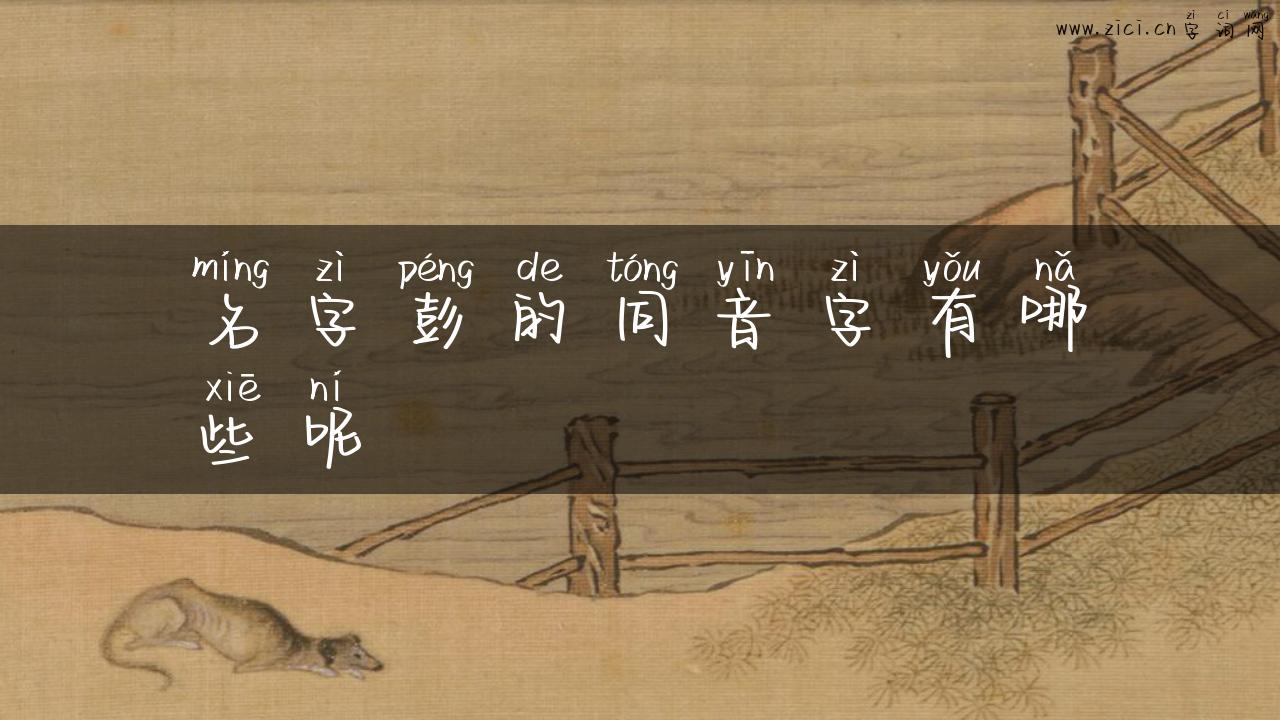 zì cí wǎng
www.zici.cn字词网
míng zì péng de tóng yīn zì yǒu nǎ
名字彭的同音字有哪
xiē ní
些呢